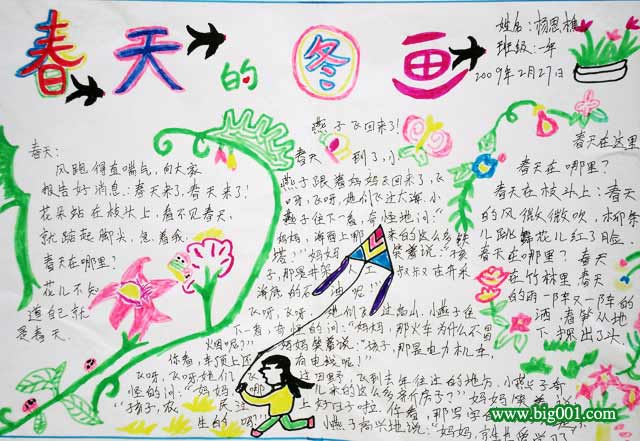 春天的图画
姓名：杨思雄
班级：一年
2009年2月27日
春天：
风跑得直喘气，向大家
报告好消息：春天来了，春天来了！
花朵站在枝头上，看不见春天，
就踮起脚尖，急着找。
春天在哪里？
花儿不知
道自己就
是春天。
燕子飞回来了！
春天到了，小
燕子跟着妈妈去回来了，飞
呀，飞呀，她们飞过大海，小
燕子往下一看，奇怪地问：“
妈妈，海面上哪 来的这么多铁
塔？”妈妈 笑着说：“孩
子，那是井架， 工 叔叔在开采
海底的石油呢！”
飞呀，飞呀，她们飞过高山，小燕子往
下一看，奇怪的问：“妈妈，那火车为什么不冒
烟呢？” 妈妈笑着说：“孩子，那是电力机车，
你看，车顶上还 有电线呢！”
飞呀，飞呀她们飞 过田野，飞到去年住过的地方，小燕子奇
怪的问：“妈妈，哪 儿来的这么多新房子？”妈妈
“孩子，农 民
小燕子高兴地说：“妈妈，
春天在这里
春天在哪里？
春天在枝头上：春天
的风微微吹，柳条
儿跳舞花儿红了脸。
春天在哪里？
在竹林里春天
的雨一阵又一阵的
洒，春笋从地
下探出了头
www.big001.com